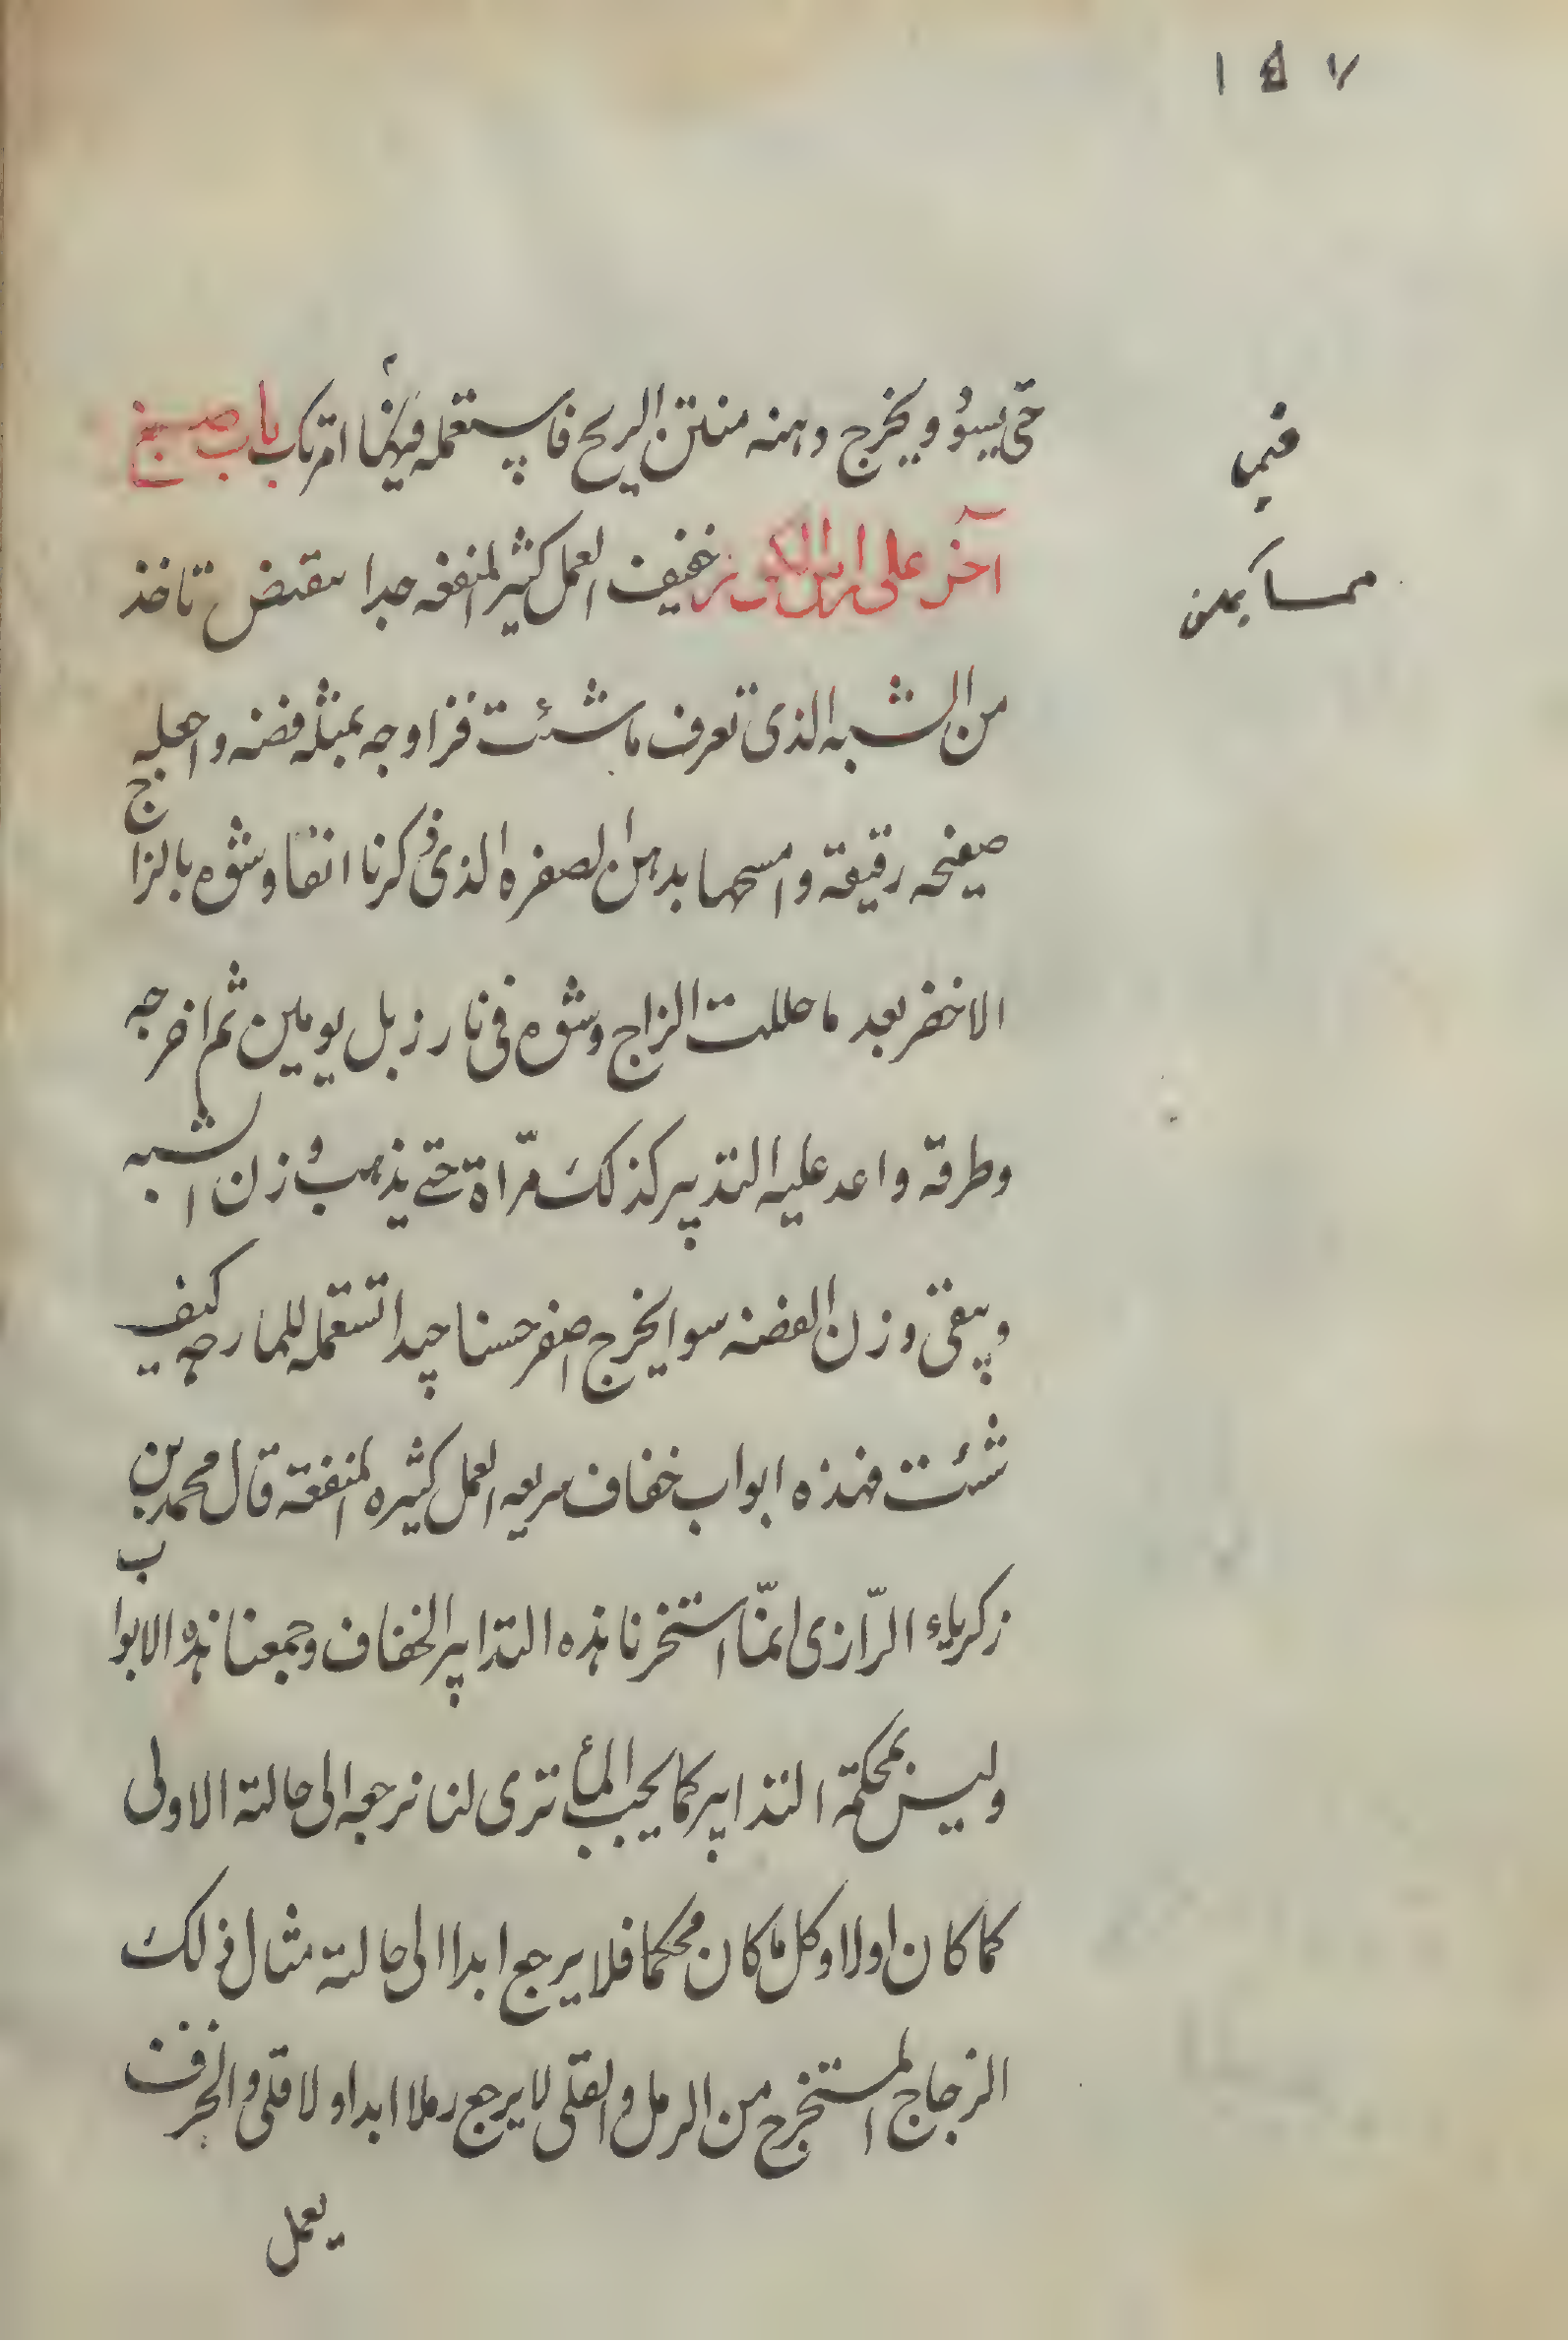 ١٤٧
حتى يسود ويخرج دهنه منتن الريح فاستعمله فيما امرتك باب صبغ
فيما
آخر على راس الكلب خفيف العمل كثير المنفعه جدا تاخذ
مما يمكن
من الشبه الذى تعرف ما شئت فزاوجه بمثله فضه واجعله
صفيحه رقيقة وامسحها بدهن الصفره الذى ذكرنا انفا وشوه بالزاج
الاخضر بعد ما حللت الزاج وشوه فى نار زبل يومين ثم اخرجه
وطرقه واعد عليه التدبير كذلك مرّاة حتى يذهب وزن الشبه
ويبقى وزن الفضه سوا يخرج اصفر حسنا جيدا تستعمله كيف
شئت فهذه ابواب خفاف سريعه العمل كثيره المنفعة قال محمد بن
زكرياء الرّازى انمّا استخرنا هذه التدابير الخفاف وجمعنا هذه الابواب
وليس بمحكمة التدابير كما يجب ترى لنا نرجعه الى حالته الاولى
كما كان اولا وكل ما كان محكما فلا يرجع ابدا الى حالته مثال ذلك
الزجاج المستخرج من الرمل والقلى لا يرجع رملا ابدا ولا قلى والخزف
يعمل